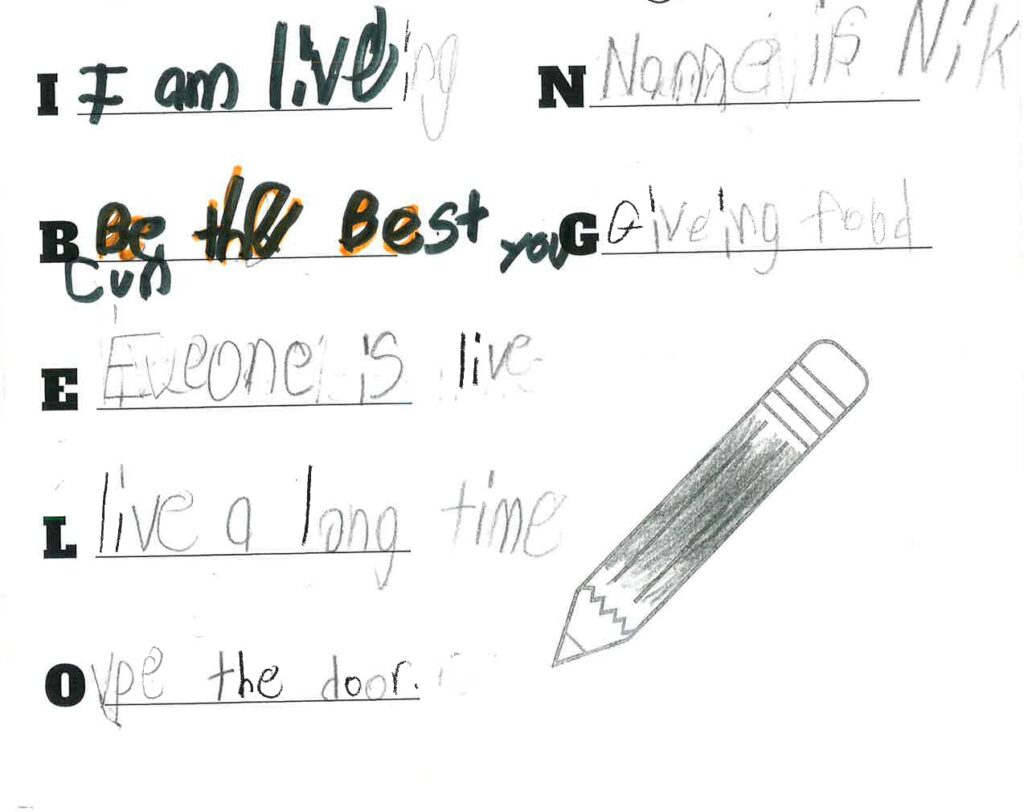 I I am liveing
B Be the Best you
Cun
E Eveone is live
L live a long time
O vpe the door.
N Name is Nik
G Giveing food